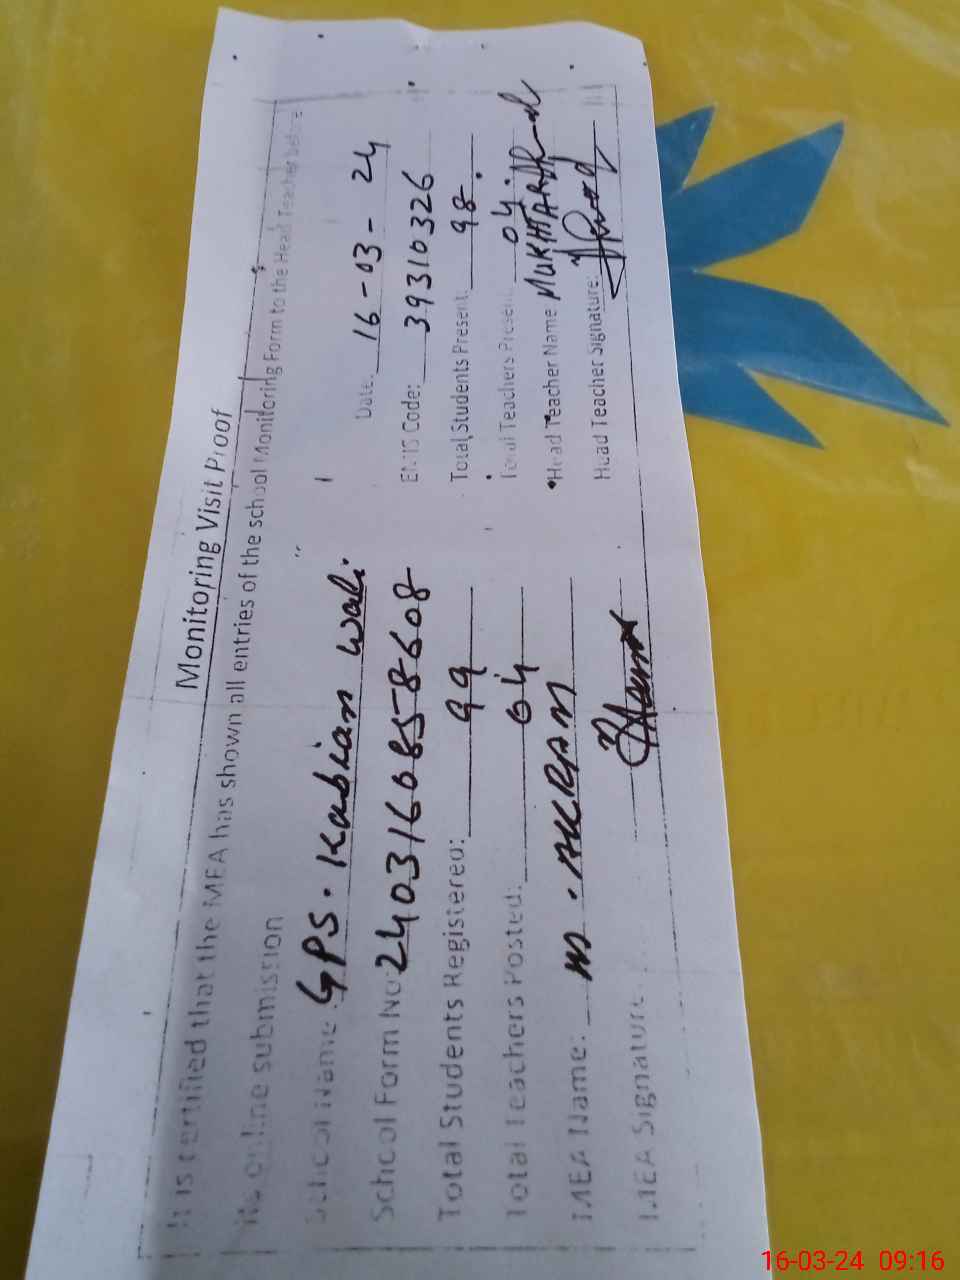 Monitoring Visit Proof
It is certified that the MEA has shown all entries of the school Monitoring Form to the Head Teacher before
its online submission
School Name: GPS. Kabian wali
Date: 16-03-24
School Form No: 24031608858608
EMIS Code: 39310326
Total Students Registered: 99
Total Students Present: 98.
Total Teachers Posted: 04
Total Teachers Present: 04
MEA Name: M. AKRAM
Head Teacher Name: MUKHTAR
MEA Signature:
Head Teacher Signature:
16-03-24 09:16